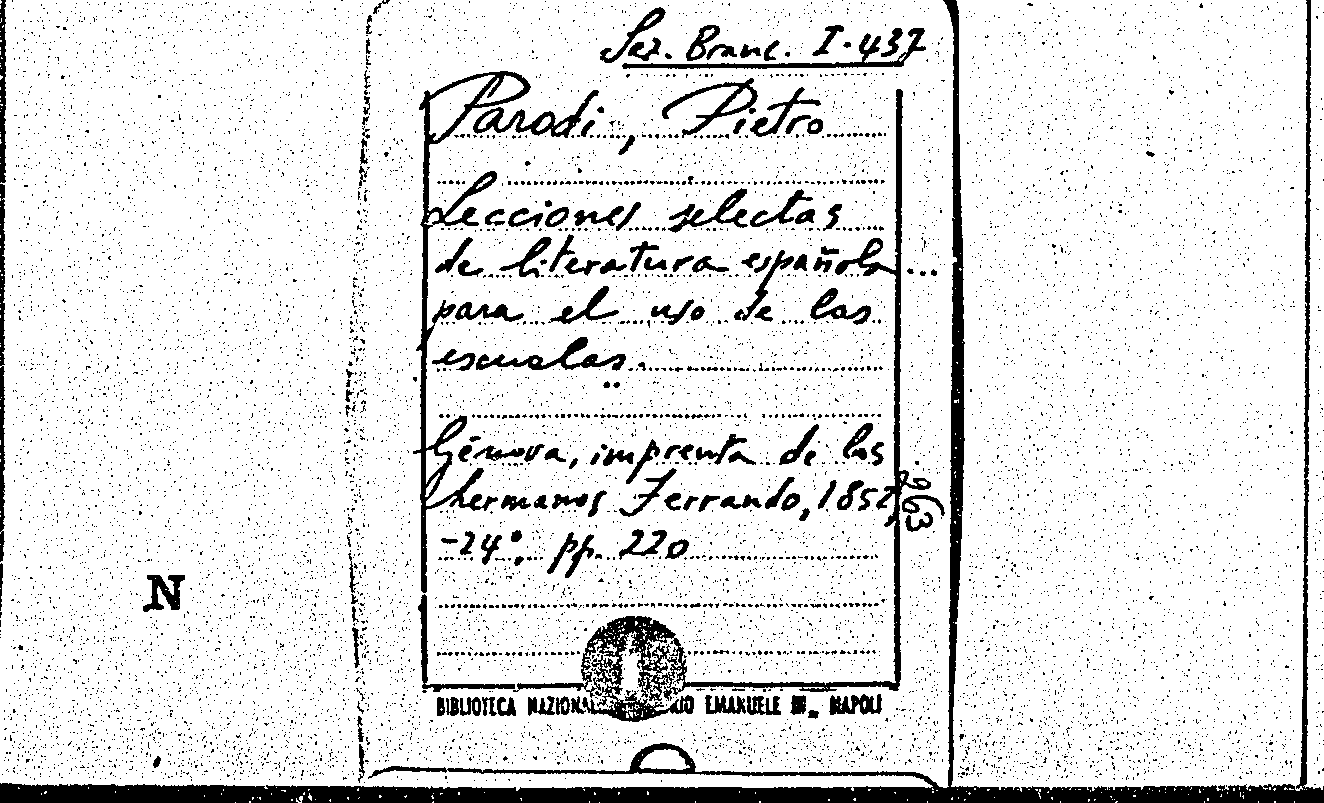 Sez. Branc. I. 437
Parodi, Pietro
Lecciones selectas
de literatura española...
para el uso de las
escuelas.
Génova, imprenta de los
hermanos Ferrando, 1852,
-24°. pp. 220
263
N
BIBLIOTECA EMANUELE III NAPOLI